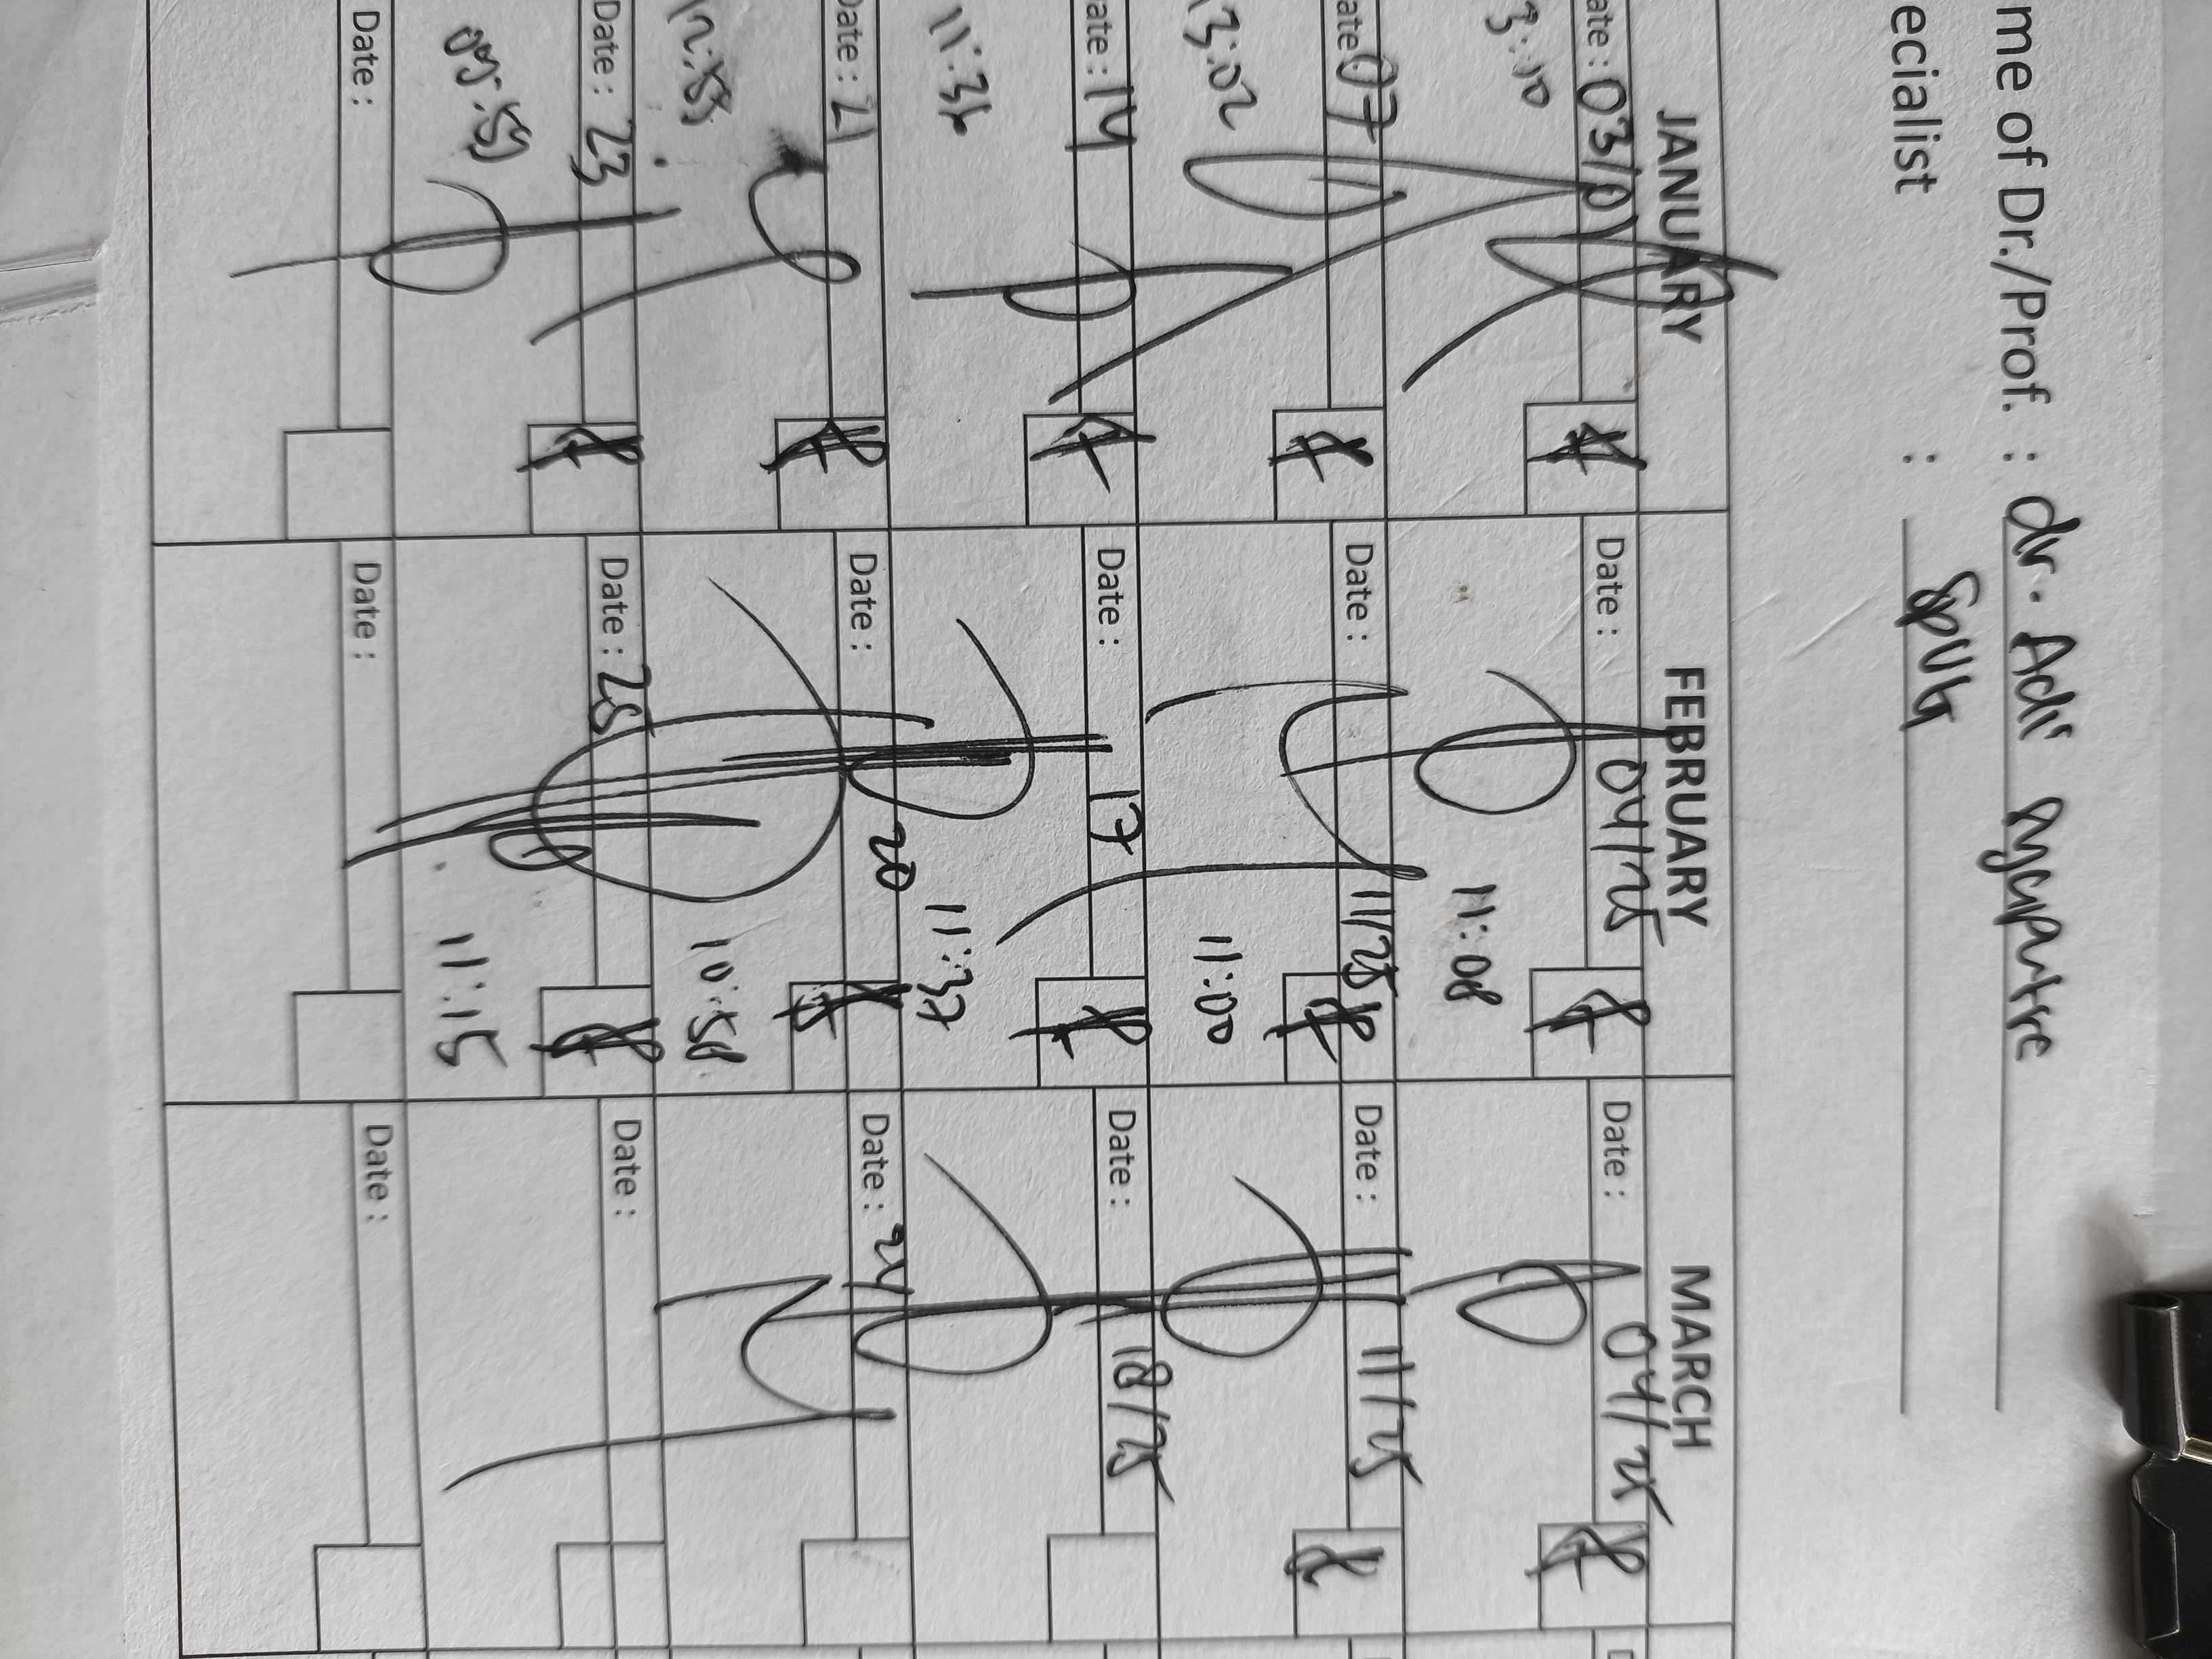 me of Dr./Prof. : dr. Adi
ecialist : SpUG
JANUARY FEBRUARY MARCH
ate : 03/01 Date : 04/25 Date : 04/25
3:10 11:08
ate 07 Date : 11/25 Date : 11/25
13:02 11:00
ate : 14 Date : 17 Date : 18/25
11:36 11:37
Date : 21 Date : 20 Date : 24
12:55 10:58
Date : 23 Date : 25 Date :
09:59 11:15
Date : Date : Date :